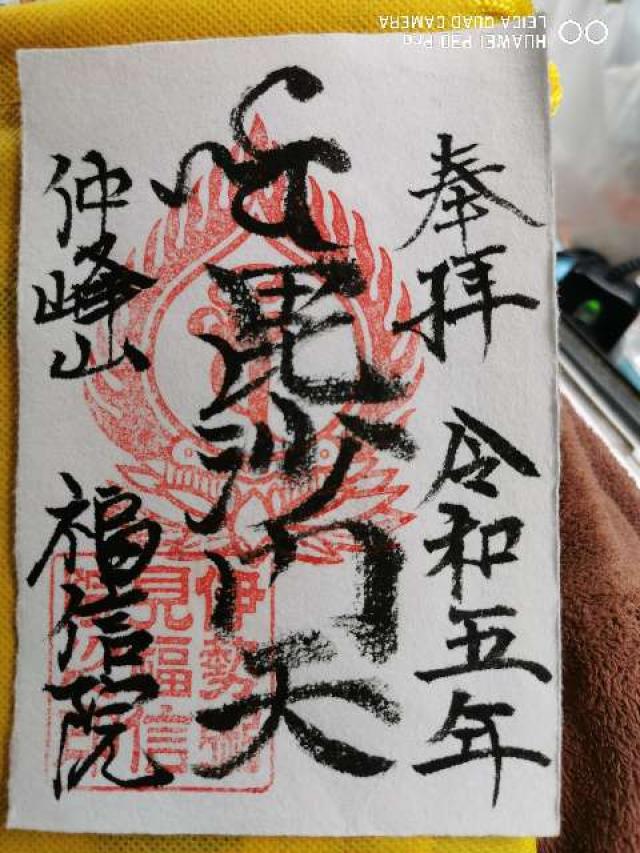 奉拝
令和五年
毘沙門天
仲峰山
福信院
伊勢
見福
信
HUAWEI P30 Pro
LEICA QUAD CAMERA